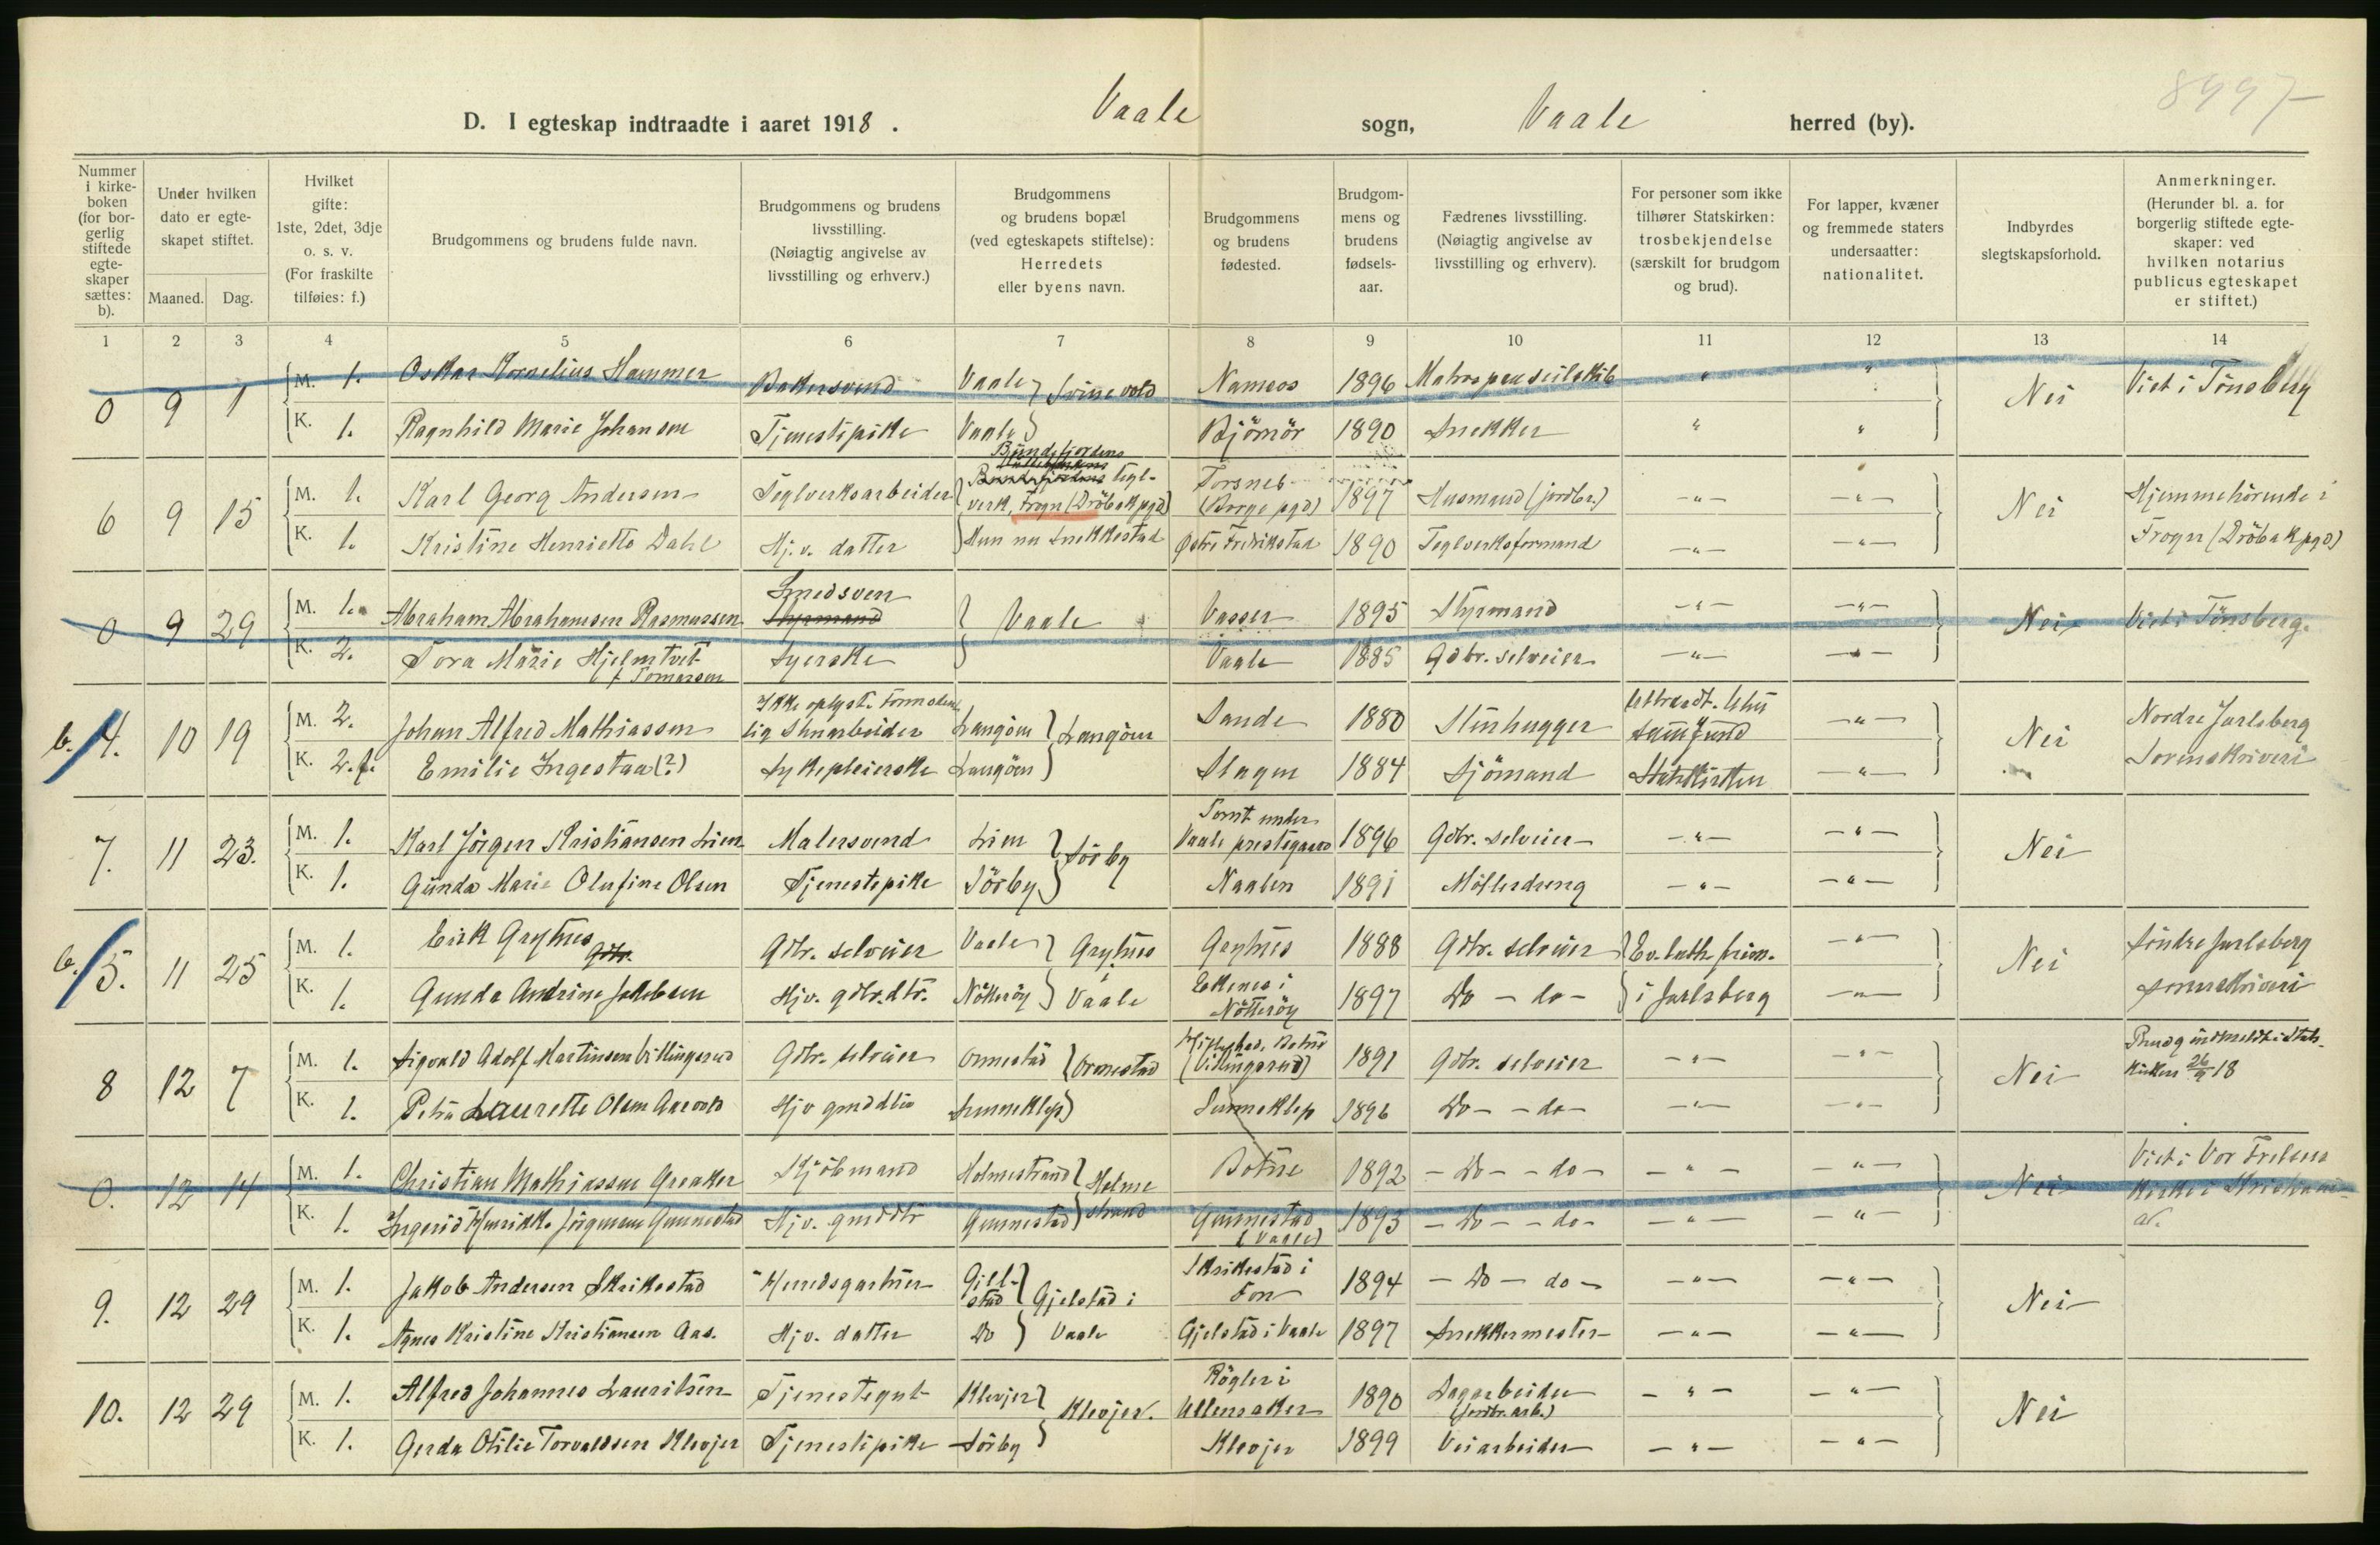 8997
D. I egteskap indtraadte i aaret 1918. Vaale sogn, Vaale herred (by).
Nummer i kirke-boken (for bor-gerlig stiftede egte-skaper sættes: b).
Under hvilken dato er egte-skapet stiftet.
Maaned. Dag.
Hvilket gifte: 1ste, 2det, 3dje o. s. v. (For fraskilte tilføies: f.)
Brudgommens og brudens fulde navn.
Brudgommens og brudens livsstilling. (Nøiagtig angivelse av livsstilling og erhverv.)
Brudgommens og brudens bopæl (ved egteskapets stiftelse): Herredets eller byens navn.
Brudgommens og brudens fødested.
Brudgom-mens og brudens fødsels-aar.
Fædrenes livsstilling. (Nøiagtig angivelse av livsstilling og erhverv).
For personer som ikke tilhører Statskirken: trosbekjendelse (særskilt for brudgom og brud).
For lapper, kvæner og fremmede staters undersaatter: nationalitet.
Indbyrdes slegtskapsforhold.
Anmerkninger. (Herunder bl. a. for borgerlig stiftede egte-skaper: ved hvilken notarius publicus egteskapet er stiftet.)
1 2 3 4 5 6 7 8 9 10 11 12 13 14
0 9 1 M. 1. Oskar Kornelius Hammer Bakersvend Vaale } Svinevold Namsos 1896 Matros paa seilskib " " Nei Viet i Tönsberg
K. 1. Ragnhild Marie Johansen Tjenestepike Vaale Bjömör 1890 Snekker " "
Bundefjordens
6 9 15 M. 1. Karl Georg Andersen Teglverksarbeider Bundefjordens Tegl-verk, Frogn (Dröbak pgd) Torsnes (Borge pgd) 1897 Husmand (jordbr.) -"- -"- Nei Hjemmehörende i
K. 1. Kristine Henriette Dahl Hj.v. datter Hun nu Snekkestad Østre Fredrikstad 1890 Teglverksformand -"- -"- Frogn (Dröbak pgd)
0 9 29 M. 1. Abraham Abrahamsen Rasmussen Smedsven Styrmand } Vaale Vasser 1895 Styrmand -"- -"- Nei Viet i Tönsberg.
K. 2. Tora Marie Hjelmtvet f. Tomassen Syerske Vaale 1885 Gdbr. selveier -"- -"-
b. 4. 10 19 M. 2. Johan Alfred Mathiassen Ikke oplyst. Langöen } Langöen Sande 1880 Stenhugger samfund -"- Nei Nordre Jarlsberg
K. 2. f. Emilie Ingestaa (?) Sykepleierske Langöen Slagen 1884 Sjömand Statskirken -"- Sorenskriveri
7. 11 23. M. 1. Karl Jörgen Kristiansen Lien Malersvend Lien } Sörby Tomt under Vaale prestegaard 1896 Gdbr. selveier -"- -"- Nei
K. 1. Gunda Marie Olufine Olsen Tjenestepike Sörby Naalen 1891 Möllerdreng -"- -"-
b. 5. 11 25 M. 1. Erik Grytnes Gdbr. Gdbr. selveier Vaale } Grytnes Grytnes 1888 Gdbr. selveier Ev. luth. frim. -"- Nei Söndre Jarlsberg
K. 1. Gunda Andrine Jakobsen Hjv. gdbr. dtr. Nötteröy } Vaale Ekenes i Nötteröy 1897 Do - do - i Jarlsberg -"- sorenskriveri
8 12 7 M. 1. Sigvald Adolf Martinsen Villingsrud Gdbr. selveier Ormestad } Ormestad Botne (Villingsrud) 1891 Gdbr. selveier -"- -"- Nei indmeldt i Stats-kirken 26/9 18
K. 1. Petra Laurette Olsen Aasvold Hjv gmddtr Sunneklep Sunneklep 1896 Do - - do - -"- -"-
0. 12 14 M. 1. Christian Mathiassen Greaker Kjöbmand Holmestrand } Holmestrand Botne 1892 - Do - - do - -"- -"- Nei Viet i Vor Frelsers
K. 1. Ingerid Henrikke Jörgensen Gunnestad Hjv. gmddtr Gunnestad Gunnestad (Vaale) 1893 - Do - - do - -"- -"- kirke i Kristiania.
9. 12 29 M. 1. Jakob Andersen Skrikestad Herredsgartner Gjelstad } Gjelstad i Skrikestad i Fon 1894 - Do - do - -"- -"- Nei
K. 1. Agnes Kristine Kristiansen Aas. Hjv. datter Do } Vaale Gjelstad i Vaale 1897 Snekkermester -"- -"-
10. 12 29 M. 1. Alfred Johannes Lauritsen Tjenestegut Klevjer } Klevjer. Rögler i Ullensaker 1890 Dagarbeider (jordbr. arb.) -"- -"- Nei
K. 1. Gerda Otilie Torvaldsen Klevjer Tjenestepike Sörby Klevjer 1899 Veiarbeider -"- -"-